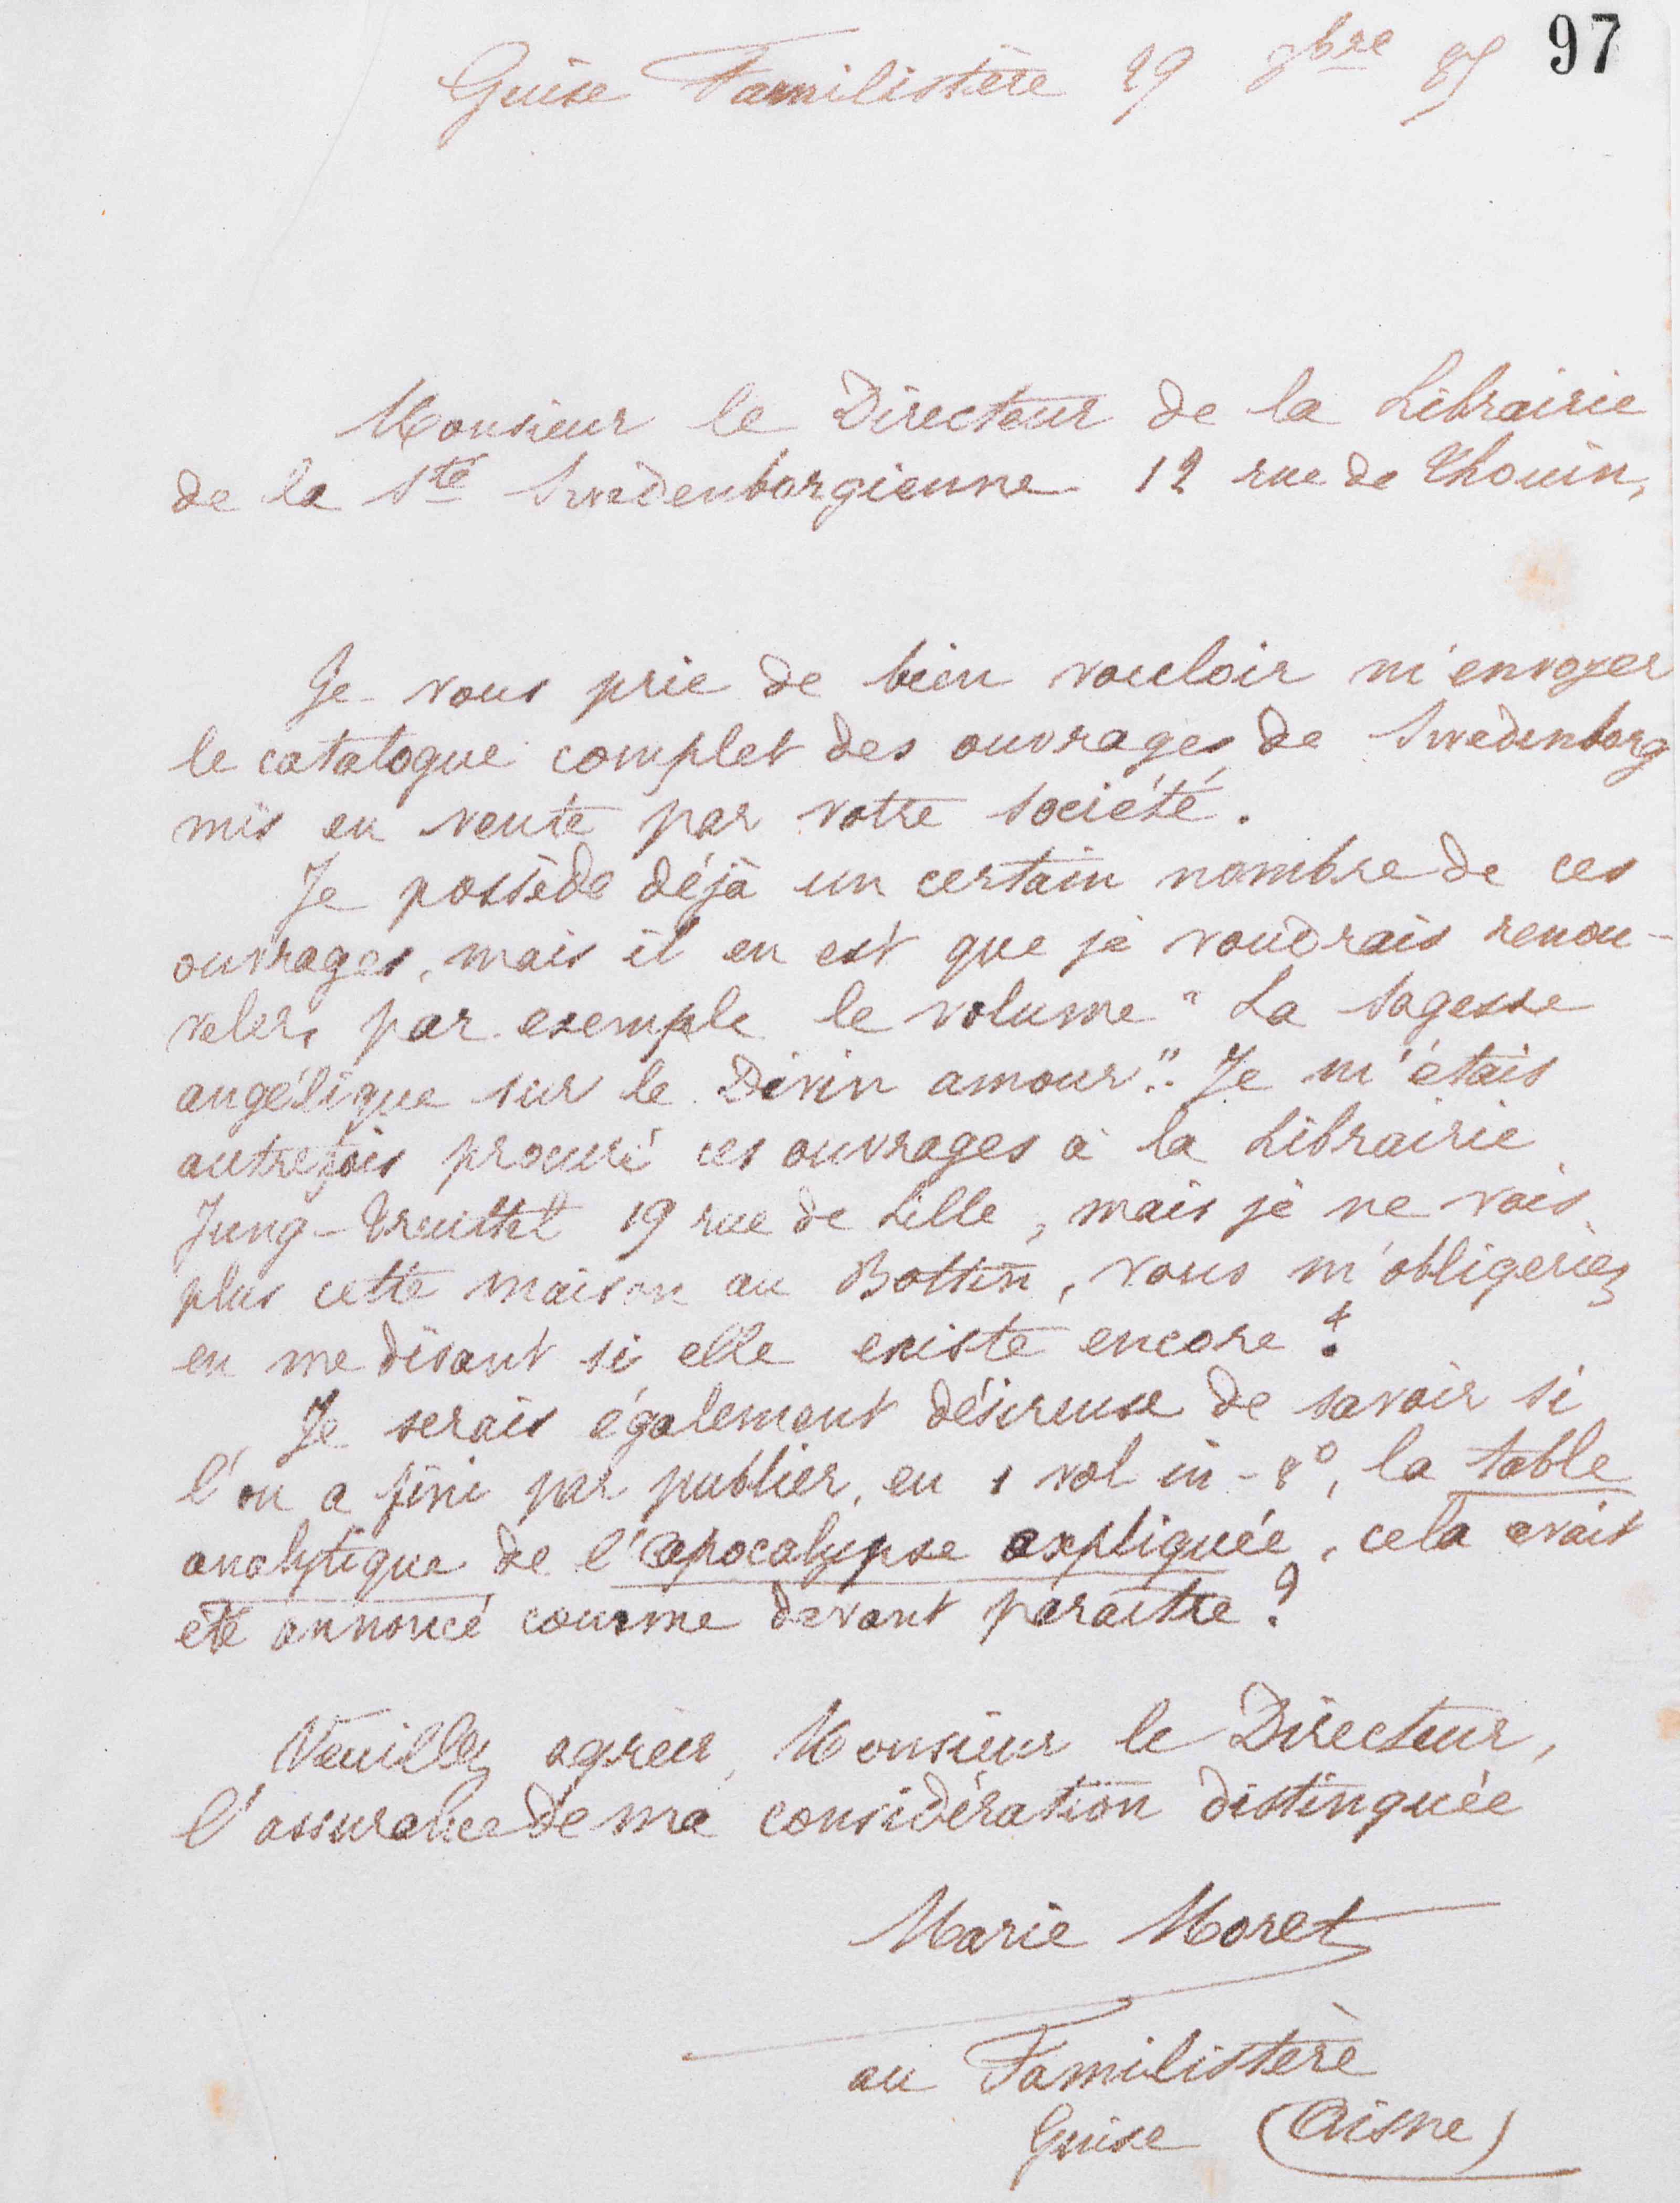 97
Guise Familistère 29 9bre 85
Monsieur le Directeur de la Librairie
de la Sté Swedenborgienne 12 rue de Thouin,
Je vous prie de bien vouloir m'envoyer
le catalogue complet des ouvrages de Swedenborg
mis en vente par votre société.
Je possède déjà un certain nombre de ces
ouvrages, mais il en est que je voudrais renou-
veler, par exemple le volume "La Sagesse
angélique sur le Divin amour". Je m'étais
autrefois procuré ces ouvrages à la Librairie
Jung-Treuttel 19 rue de Lille, mais je ne vois
plus cette maison au Bottin, vous m'obligeriez
en me disant si elle existe encore ?
Je serais également désireuse de savoir si
l'on a fini par publier, en 1 vol in-8°, la table
analytique de l'apocalypse expliquée, cela avait
été annoncé comme devant paraître ?
Veuillez agréer, Monsieur le Directeur,
l'assurance de ma considération distinguée
Marie Moret
au Familistère
Guise (Aisne)